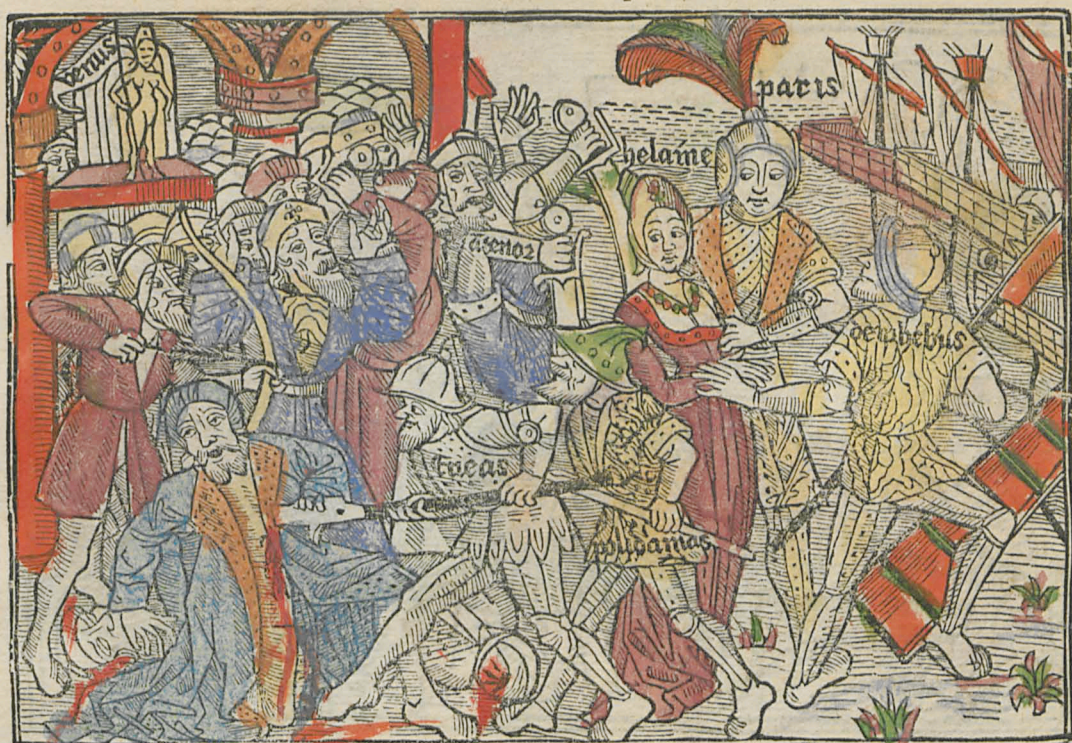 venus
paris
helaine
atenor
deuphebus
eneas
polidamas